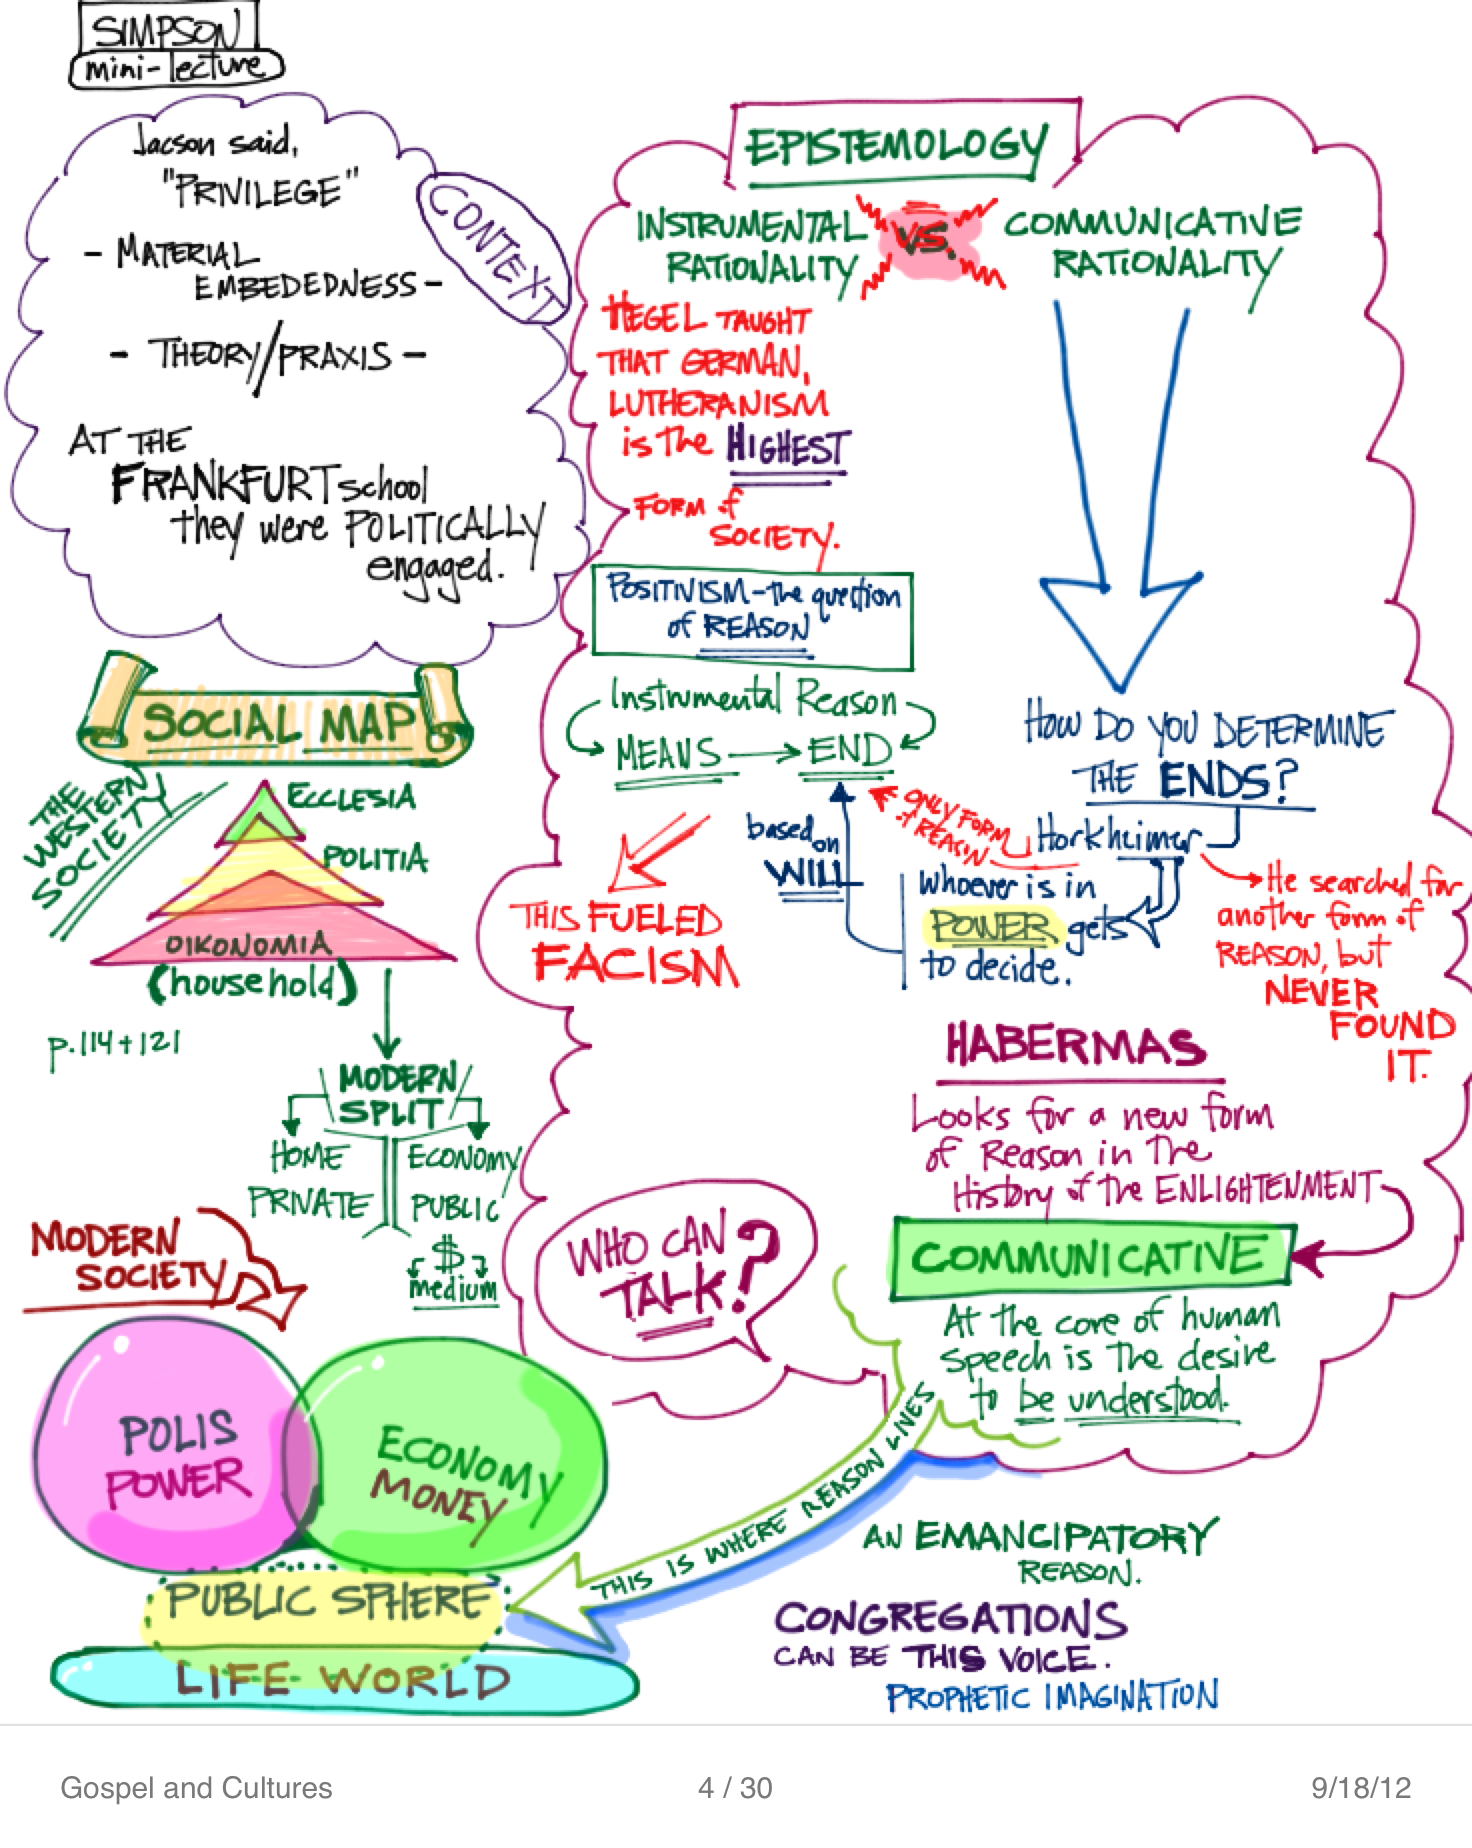 SIMPSON
mini-lecture
Jacson said,
"PRIVILEGE"
- MATERIAL
EMBEDEDNESS -
- THEORY/PRAXIS -
AT THE
FRANKFURT school
they were POLITICALLY
engaged.
CONTEXT
SOCIAL MAP
THE
WESTERN
SOCIETY
ECCLESIA
POLITIA
OIKONOMIA
(household)
p.114+121
MODERN
SPLIT
HOME
PRIVATE
ECONOMY
PUBLIC
$
medium
MODERN
SOCIETY
POLIS
POWER
ECONOMY
MONEY
PUBLIC SPHERE
LIFE WORLD
EPISTEMOLOGY
INSTRUMENTAL
RATIONALITY
VS.
COMMUNICATIVE
RATIONALITY
HEGEL TAUGHT
THAT GERMAN,
LUTHERANISM
is the HIGHEST
FORM of
SOCIETY.
POSITIVISM-the question
of REASON
Instrumental Reason
MEANS
END
THIS FUELED
FACISM
based
on
WILL
ONLY FORM
of REASON
HOW DO YOU DETERMINE
THE ENDS?
Horkheimer
Whoever is in
POWER gets
to decide.
He searched for
another form of
REASON, but
NEVER
FOUND
IT.
HABERMAS
Looks for a new form
of Reason in The
History of the ENLIGHTENMENT
COMMUNICATIVE
At the core of human
speech is the desire
to be understood.
WHO CAN
TALK?
THIS IS WHERE REASON LIVES
AN EMANCIPATORY
REASON.
CONGREGATIONS
CAN BE THIS VOICE.
PROPHETIC IMAGINATION
Gospel and Cultures
4 / 30
9/18/12